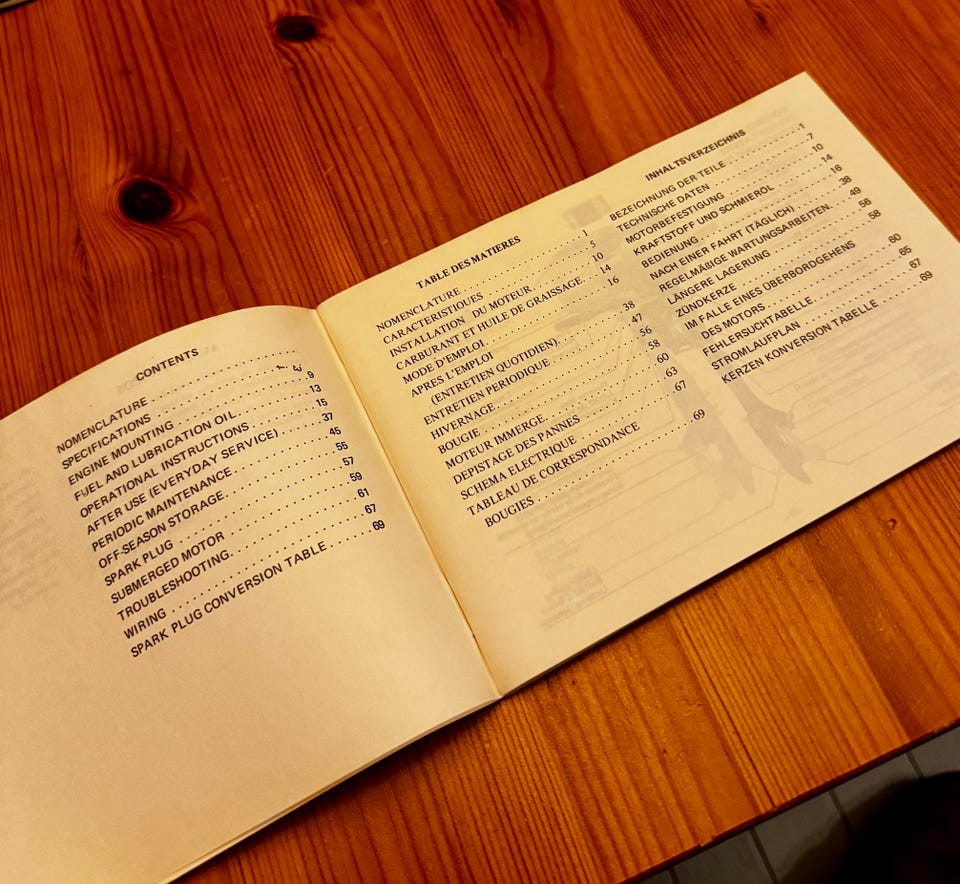 CONTENTS
NOMENCLATURE . . . . . . . . . . 1
SPECIFICATIONS . . . . . . . . . . 3
ENGINE MOUNTING . . . . . . . . . . 9
FUEL AND LUBRICATION OIL . . . . . . . . . . 13
OPERATIONAL INSTRUCTIONS . . . . . . . . . . 15
AFTER USE (EVERYDAY SERVICE) . . . . . 37
PERIODIC MAINTENANCE . . . . . . . . . . 45
OFF-SEASON STORAGE . . . . . . . . . . 55
SPARK PLUG . . . . . . . . . . 57
SUBMERGED MOTOR . . . . . . . . . . 59
TROUBLESHOOTING . . . . . . . . . . 61
WIRING . . . . . . . . . . 67
SPARK PLUG CONVERSION TABLE . . . . . 69
TABLE DES MATIERES
NOMENCLATURE . . . . . . . . . . 1
CARACTERISTIQUES . . . . . . . . . . 5
INSTALLATION DU MOTEUR . . . . . . . . . . 10
CARBURANT ET HUILE DE GRAISSAGE . . 14
MODE D'EMPLOI . . . . . . . . . . 16
APRES L'EMPLOI
(ENTRETIEN QUOTIDIEN) . . . . . . . . . . 38
ENTRETIEN PERIODIQUE . . . . . . . . . . 47
HIVERNAGE . . . . . . . . . . 56
BOUGIE . . . . . . . . . . 58
MOTEUR IMMERGE . . . . . . . . . . 60
DEPISTAGE DES PANNES . . . . . . . . . . 63
SCHEMA ELECTRIQUE . . . . . . . . . . 67
TABLEAU DE CORRESPONDANCE
BOUGIES . . . . . . . . . . 69
INHALTSVERZEICHNIS
BEZEICHNUNG DER TEILE . . . . . . . . . . 1
TECHNISCHE DATEN . . . . . . . . . . 7
MOTORBEFESTIGUNG . . . . . . . . . . 10
KRAFTSTOFF UND SCHMIEROL . . . . . 14
BEDIENUNG . . . . . . . . . . 16
NACH EINER FAHRT (TÄGLICH) . . . . . 38
REGELMÄßIGE WARTUNGSARBEITEN . . 49
LÄNGERE LAGERUNG . . . . . . . . . . 56
ZÜNDKERZE . . . . . . . . . . 58
IM FALLE EINES ÜBERBORDGEHENS
DES MOTORS . . . . . . . . . . 60
FEHLERSUCHTABELLE . . . . . . . . . . 65
STROMLAUFPLAN . . . . . . . . . . 67
KERZEN KONVERSION TABELLE . . . . . 69